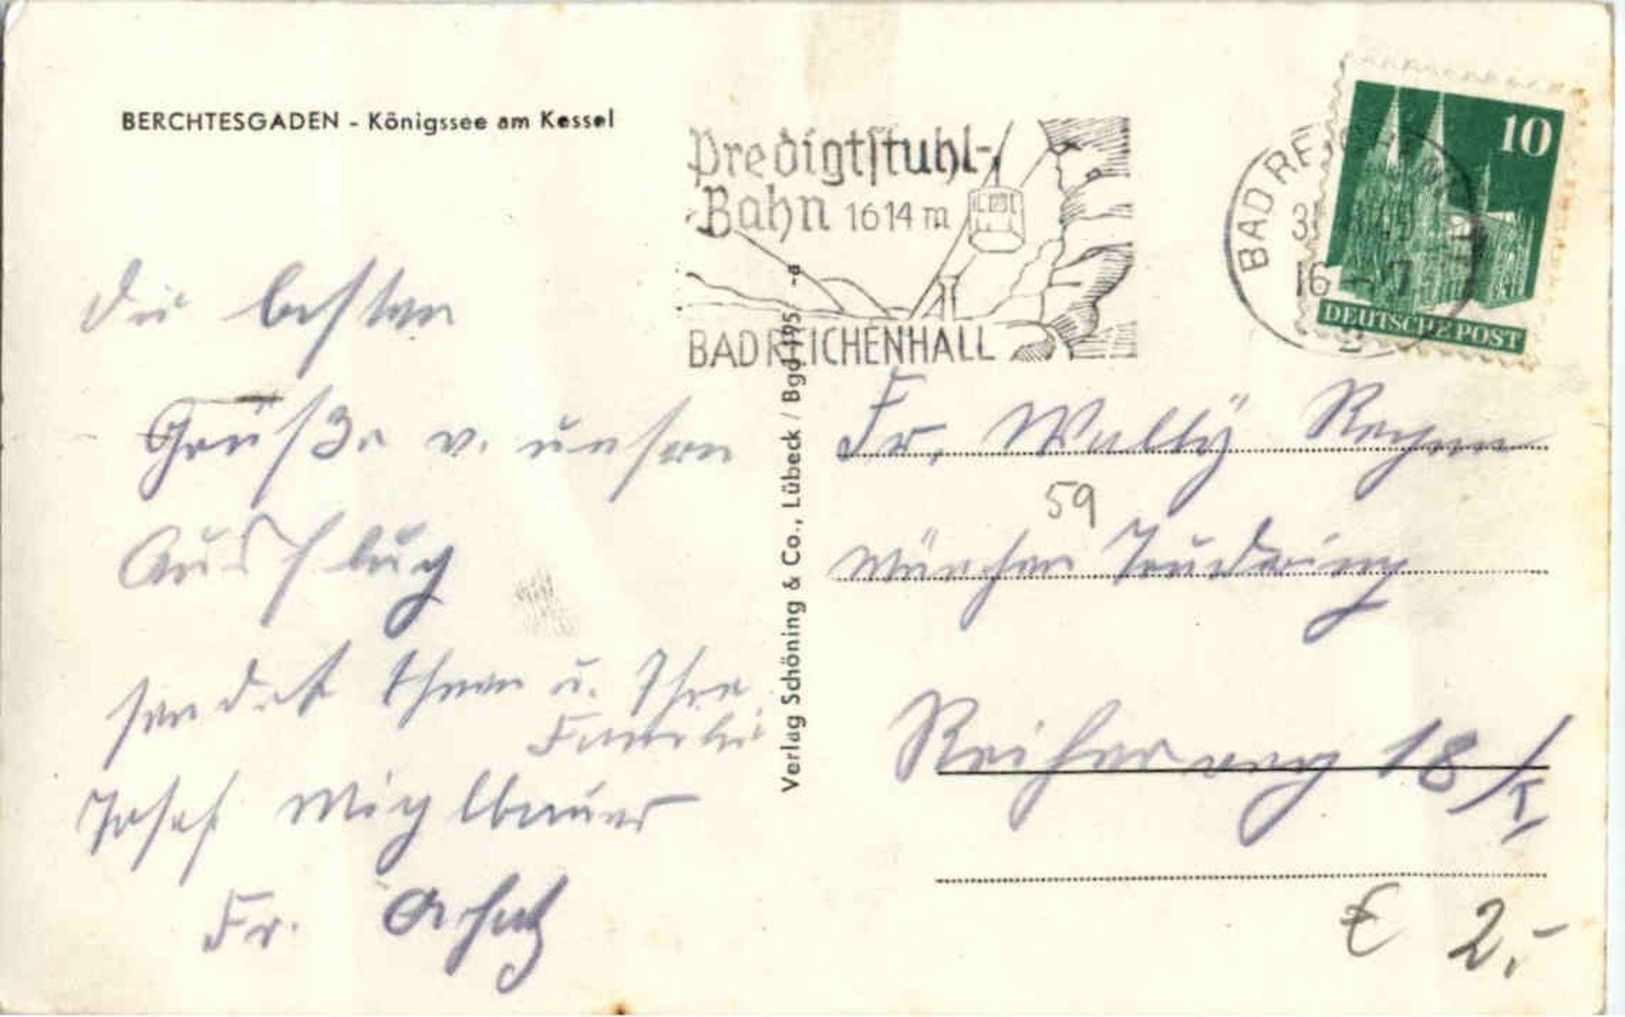 BERCHTESGADEN - Königssee am Kessel
Predigtstuhl-
Bahn 1614 m
BAD REICHENHALL
BAD REICHENHALL
16 - 17
2
10
DEUTSCHE POST
Die besten
Grüße v. unsern
Ausflug
sendet Ihnen u. Ihre
Familie
Josef Miglbauer
Fr.
Verlag Schöning & Co., Lübeck / Bgd 195 -a
Fr. Wally
59
München Trudering
Reiherweg 18/I
€ 2,-